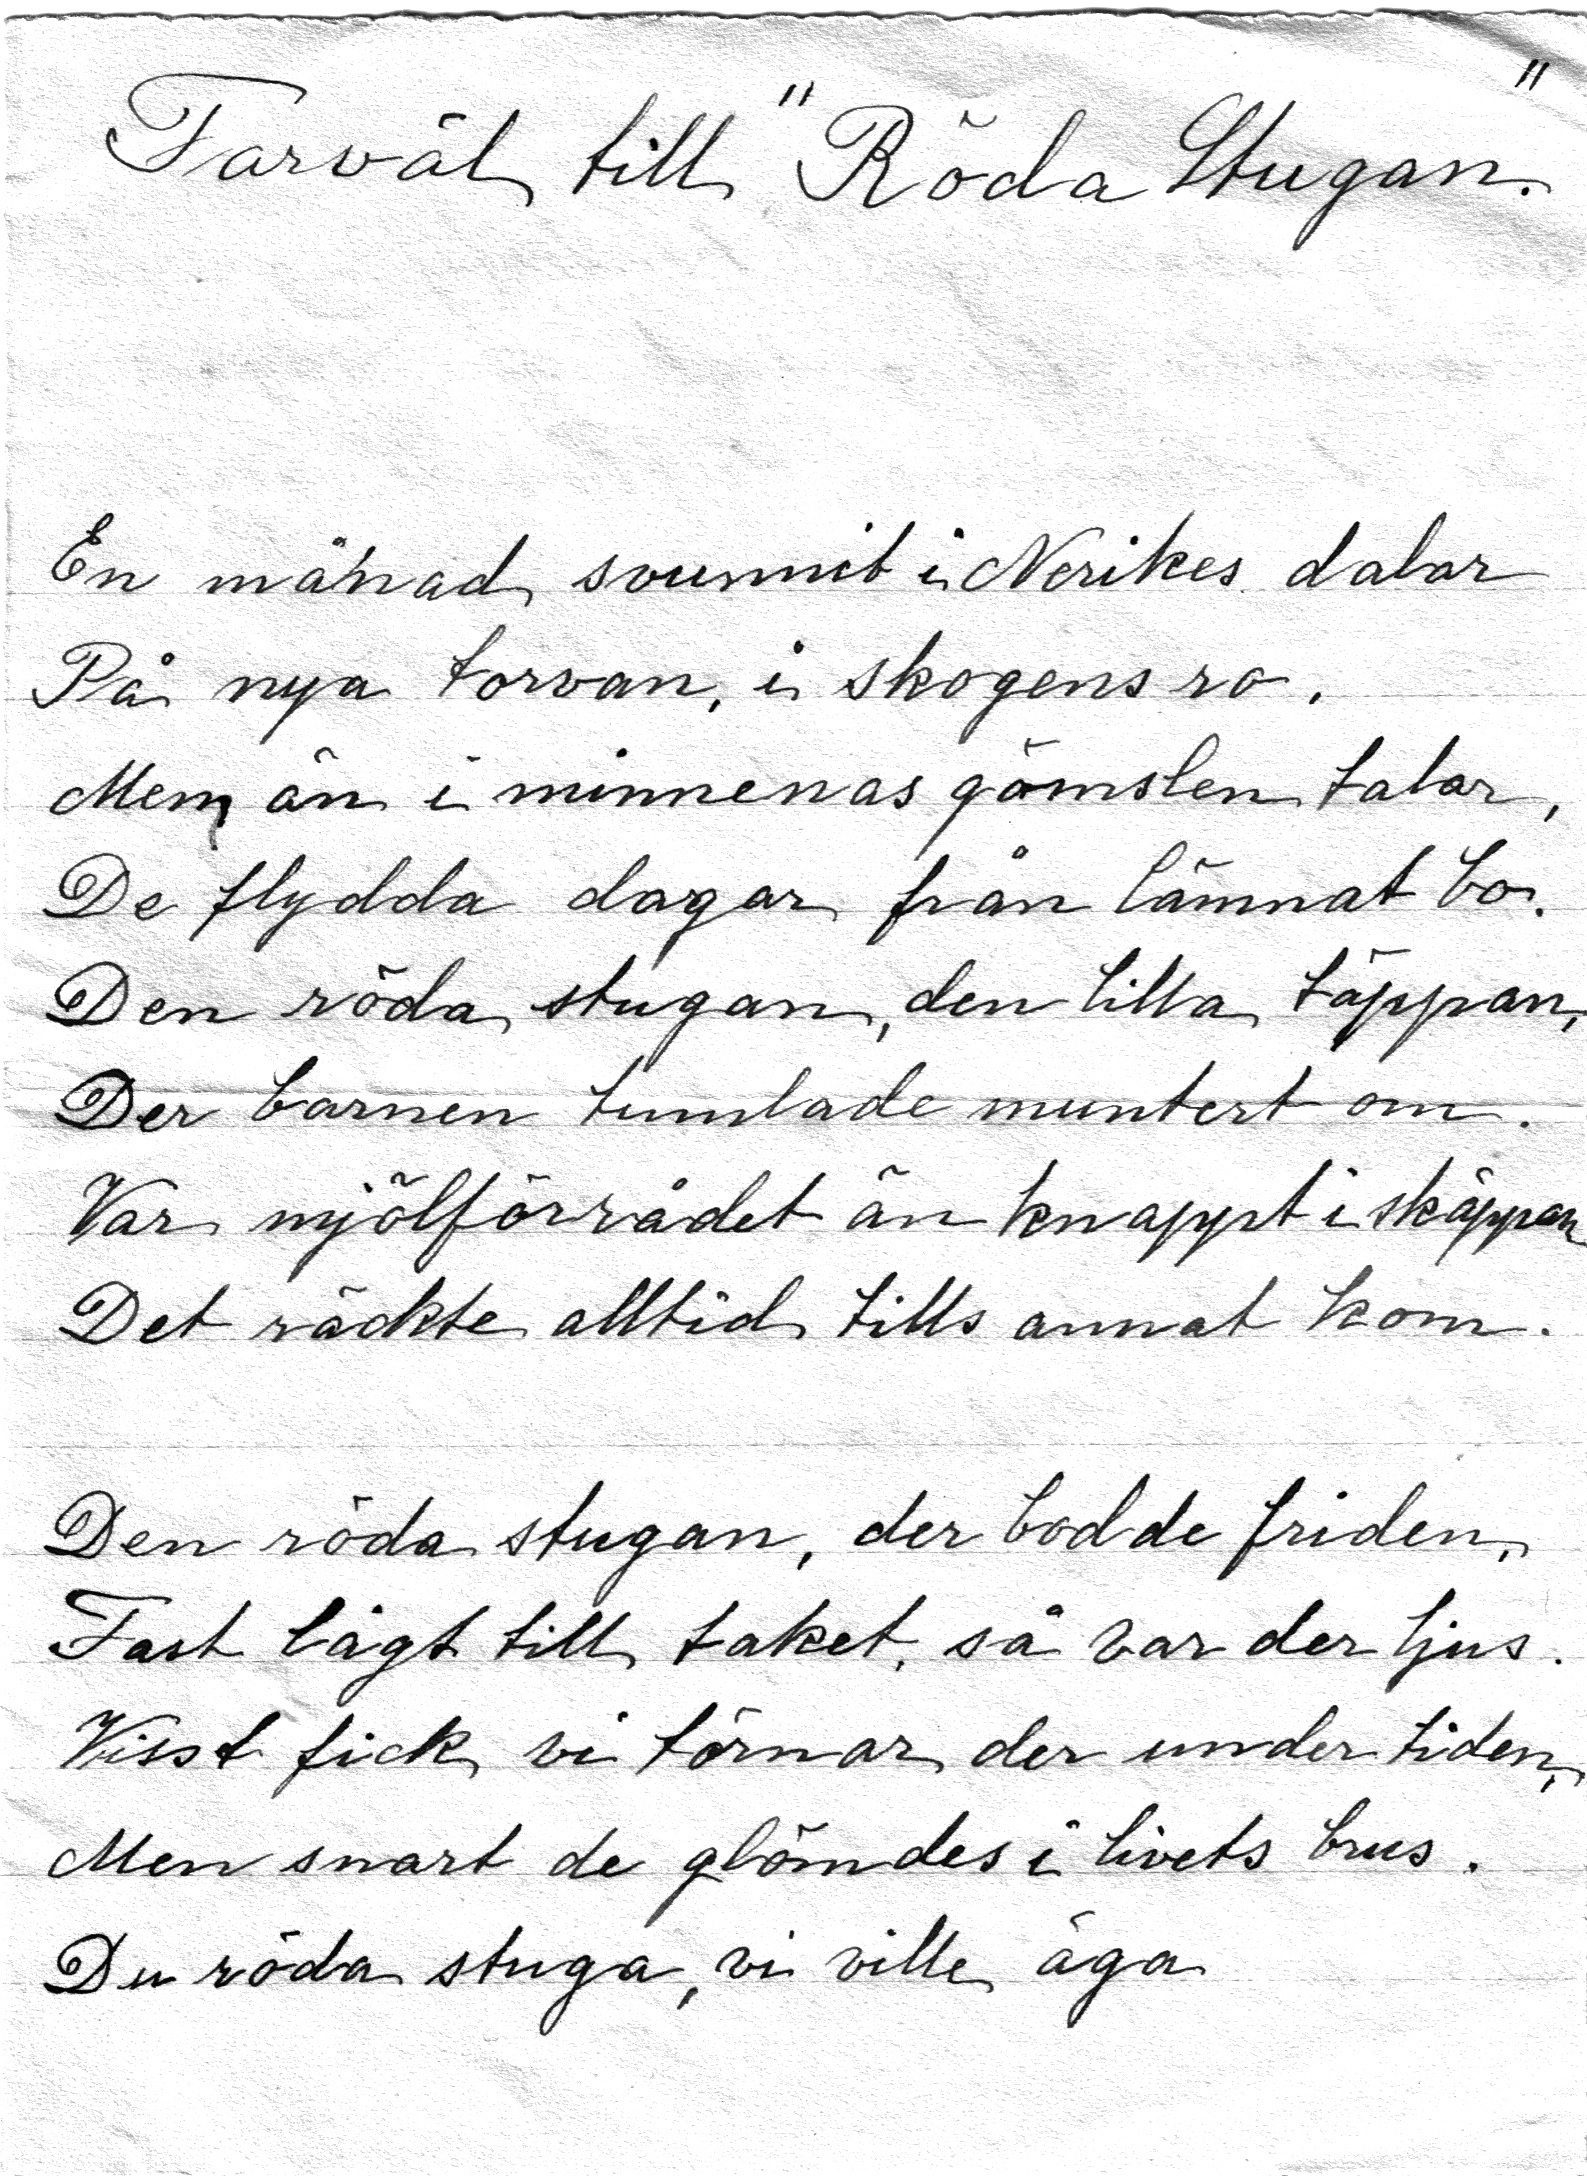 Farväl till "Röda Stugan."
En månad svunnit i Nerikes dalar
På nya torvan, i skogens ro.
Men än i minnenas gömslen talar,
De flydda dagar från lämnat bo.
Den röda stugan, den lilla täppan,
Der barnen tumlade muntert om.
Var mjölförrådet än knappt i skäppan
Det räckte alltid tills annat kom.
Den röda stugan, der bodde friden,
Fast lågt till taket, så var der ljus.
Visst fick vi törnar der under tiden,
Men snart de glömdes i livets brus.
Du röda stuga, vi ville äga